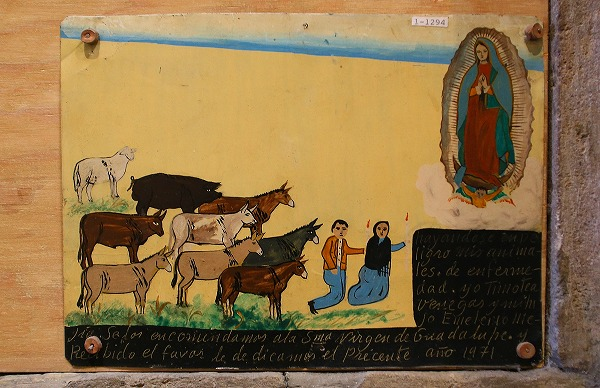 1-1294
Hayandose en Pe
ligro mis anima
les. de enferme-
dad. yo Timotea
Venegas y mi m
Sos en comundamos ala Sma Virgen de Guadalupe. y
Recibido el favor de de dicamos el Precente año 1971